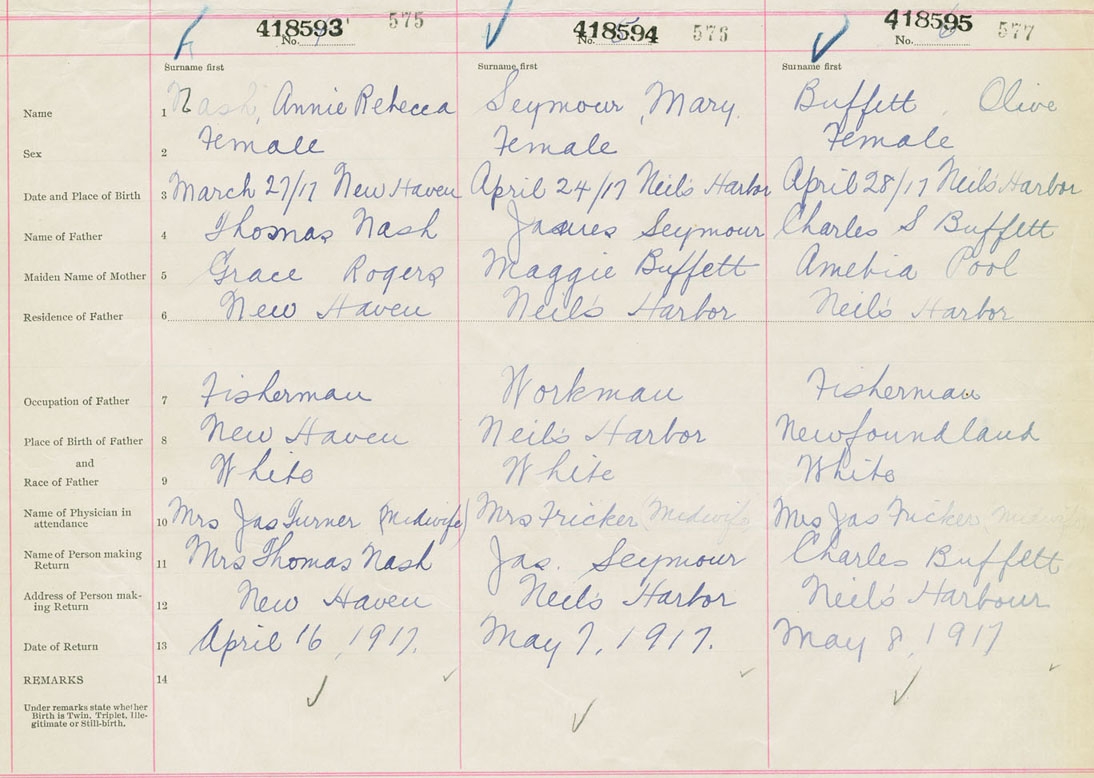 418593 575 418594 576 418595 577
No. No. No.
Surname first Surname first Surname first
Name 1 Nash, Annie Rebecca Seymour, Mary. Buffett, Olive
Sex 2 Female Female Female
Date and Place of Birth 3 March 27/17 New Haven April 24/17 Neil's Harbor April 28/17 Neil's Harbor
Name of Father 4 Thomas Nash James Seymour Charles S Buffett
Maiden Name of Mother 5 Grace Rogers Maggie Buffett Amelia Pool
Residence of Father 6 New Haven Neil's Harbor Neil's Harbor
Occupation of Father 7 Fisherman Workman Fisherman
Place of Birth of Father 8 New Haven Neil's Harbor Newfoundland
and
Race of Father 9 White White White
Name of Physician in
attendance 10 Mrs Jas Turner (Midwife) Mrs Fricker (Midwife) Mrs Jas Fricker (Midwife)
Name of Person making
Return 11 Mrs Thomas Nash Jas. Seymour Charles Buffett
Address of Person mak-
ing Return 12 New Haven Neil's Harbor Neil's Harbour
Date of Return 13 April 16, 1917. May 7, 1917. May 8, 1917
REMARKS 14
Under remarks state whether
Birth is Twin, Triplet, Ille-
gitimate or Still-birth.